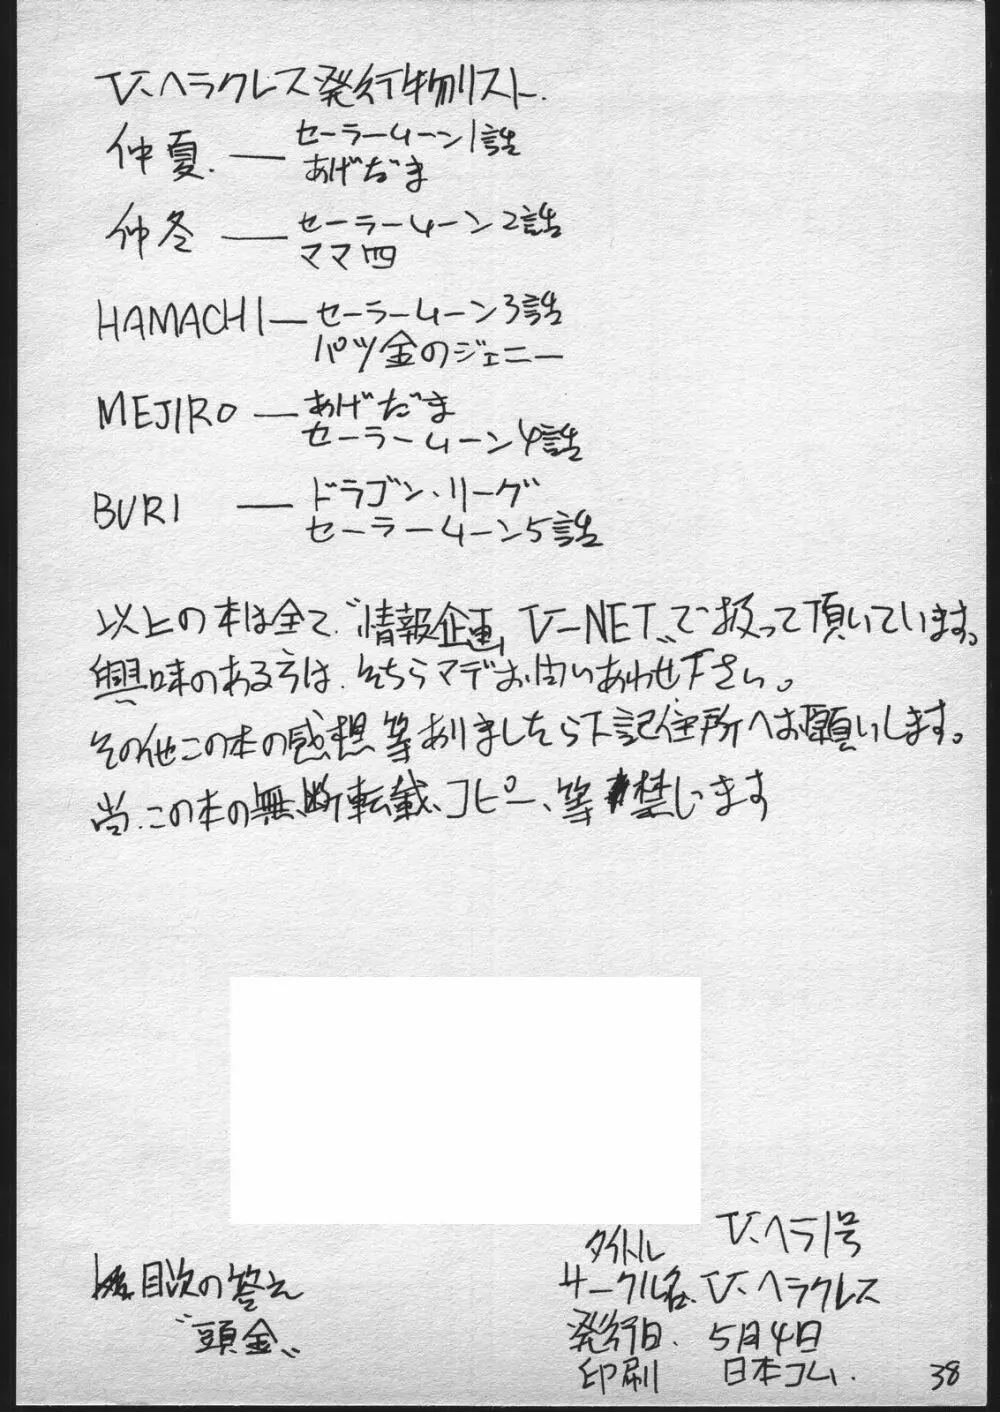 V.ヘラクレス発行物リスト.
仲夏. — セーラームーン1話
あげだま
仲冬 — セーラームーン2話
ママ四
HAMACHI — セーラームーン3話
パツ金のジェニー
MEJIRO — あげだま
セーラームーン4話
BURI — ドラゴン・リーグ
セーラームーン5話
以上の本は全て〝情報企画 V-NET〟で扱って頂いています。
興味のある方は、そちらマデお問いあわせ下さい。
その他この本の感想等ありましたら下記住所へお願いします。
尚、この本の無断転載、コピー、等禁じます
目次の答え
〝頭金〟
タイトル V.ヘラ1号
サークル名. V.ヘラクレス
発行日. 5月4日
印刷 日本コム.
38